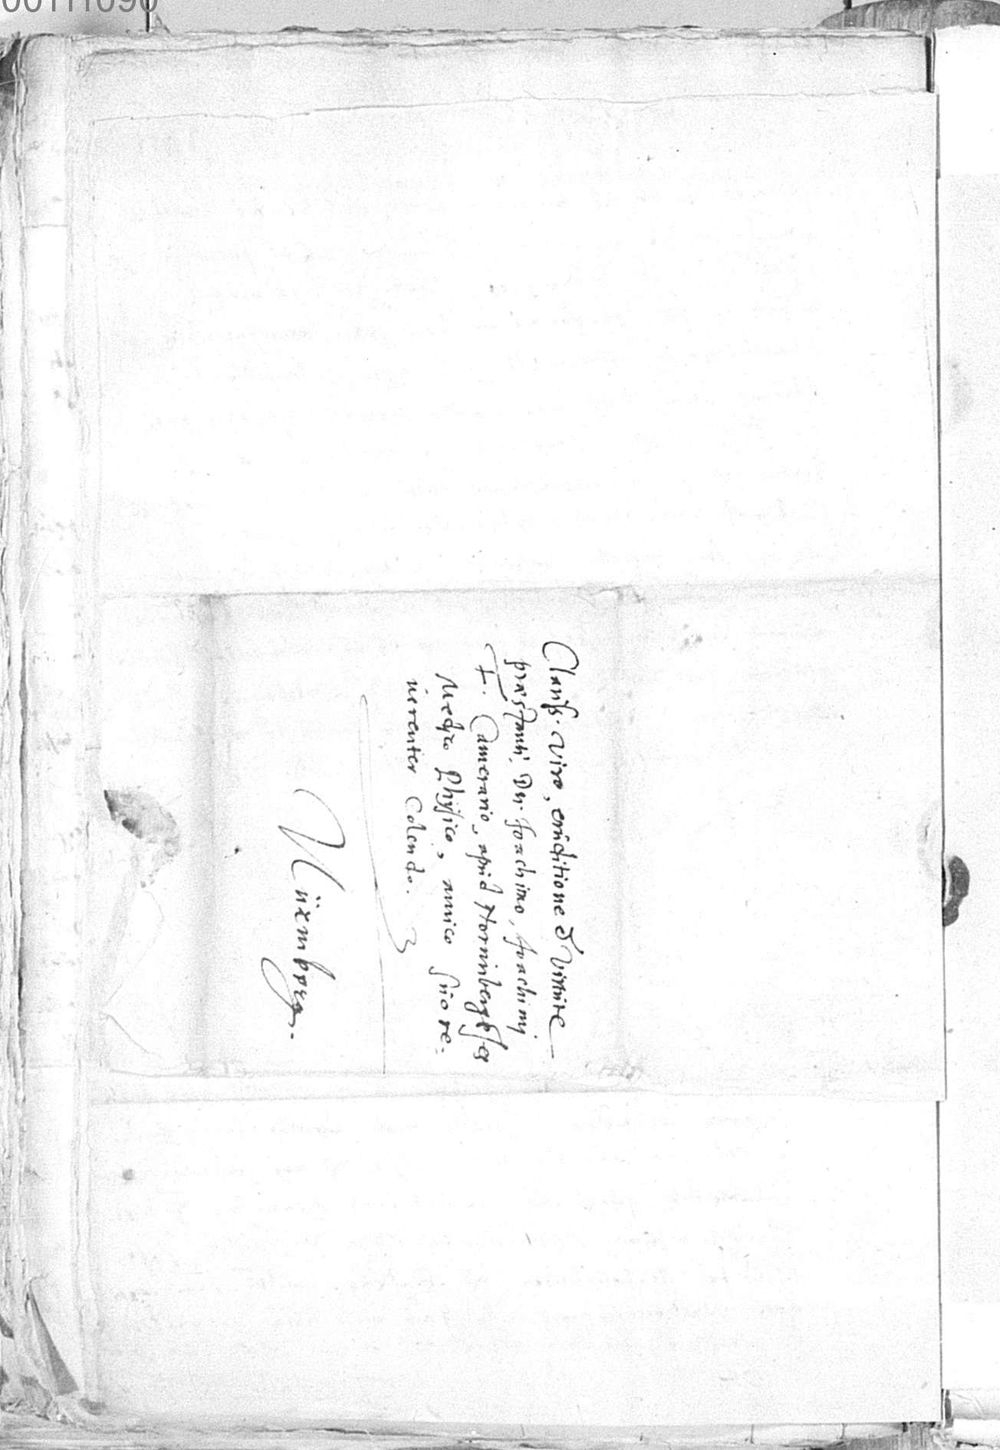 00111090
Clariss. Viro, eruditione & virtute
præstanti Dn. Joachimo, Joachimj
F. Camerario, apud Nornibergēses
Medico Physico, amico suo re-
verenter Colendo.
Nürmberg.